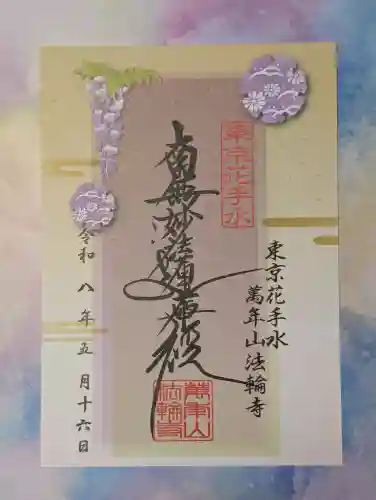 東京花手水
萬年山法輪寺
東京花手水
南無妙法蓮華経
萬年山
法輪寺
令和八年五月十六日